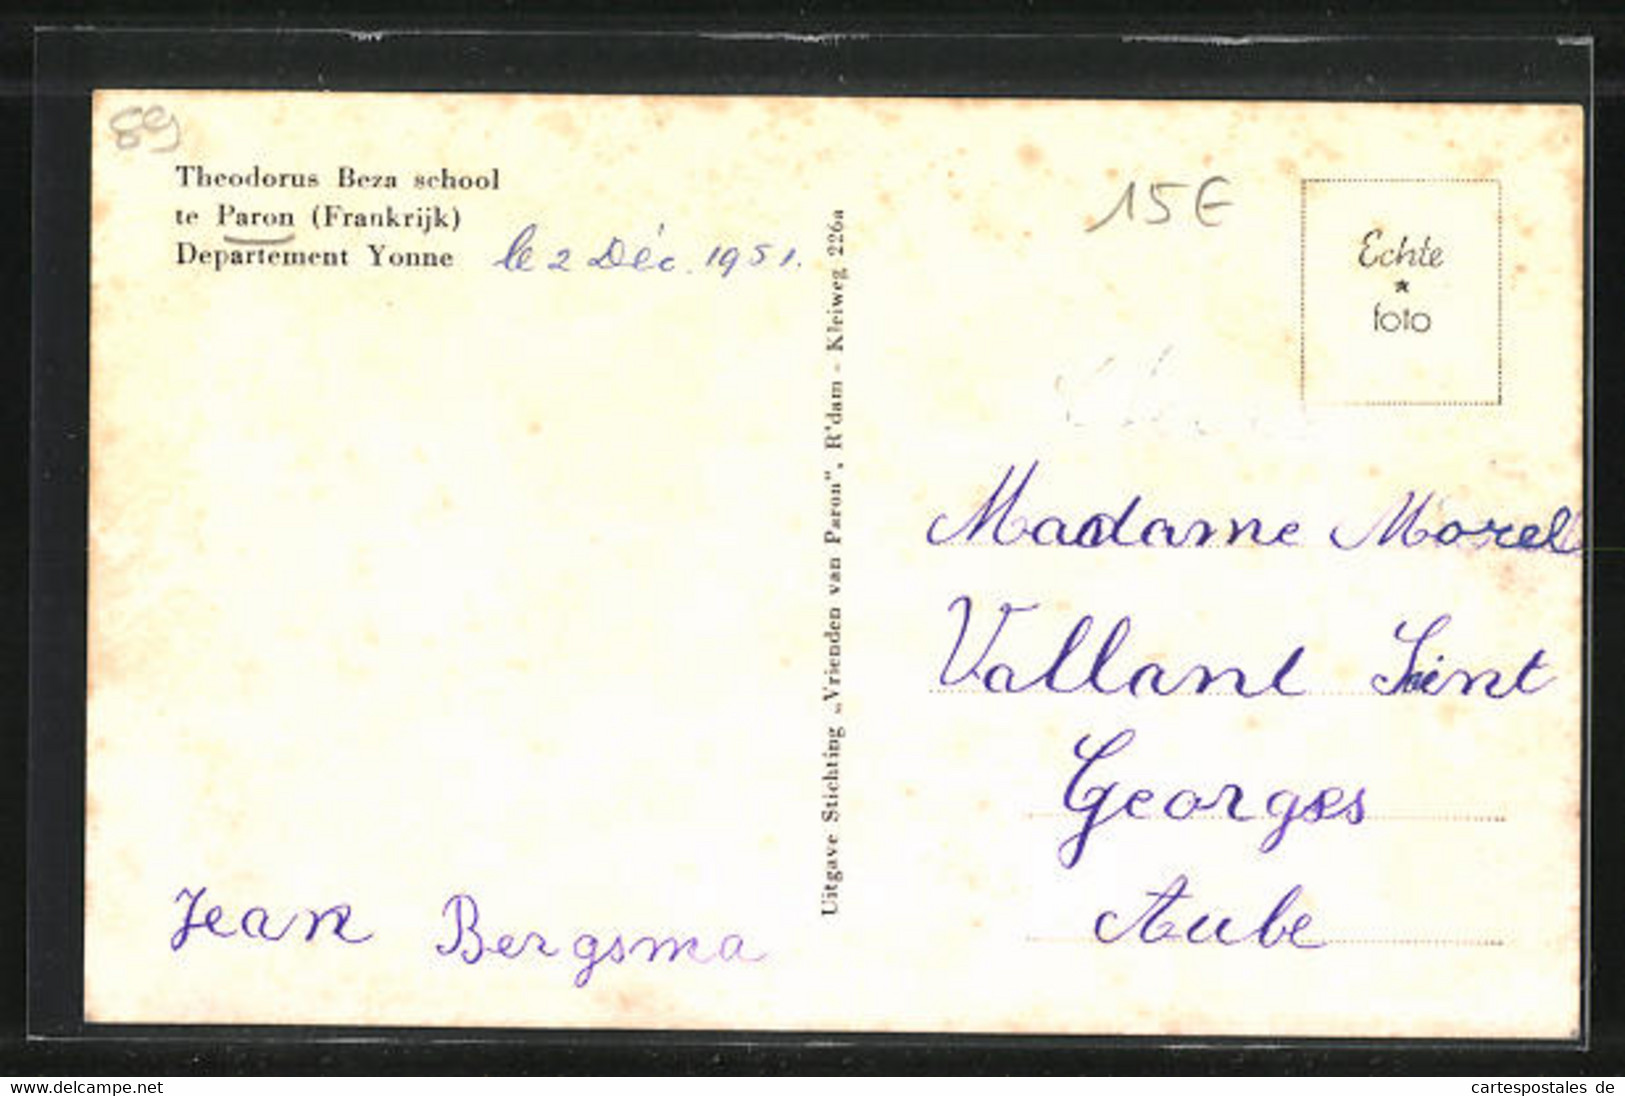 89
Theodorus Beza school
te Paron (Frankrijk)
Departement Yonne
le 2 Déc. 1951.
Jean Bergsma
Uitgave Stichting „Vrienden van Paron", R'dam - Kleiweg 226a
15€
Echte
*
foto
Madame Morel
Vallant Saint
Georges
Aube
www.delcampe.net
cartespostales de